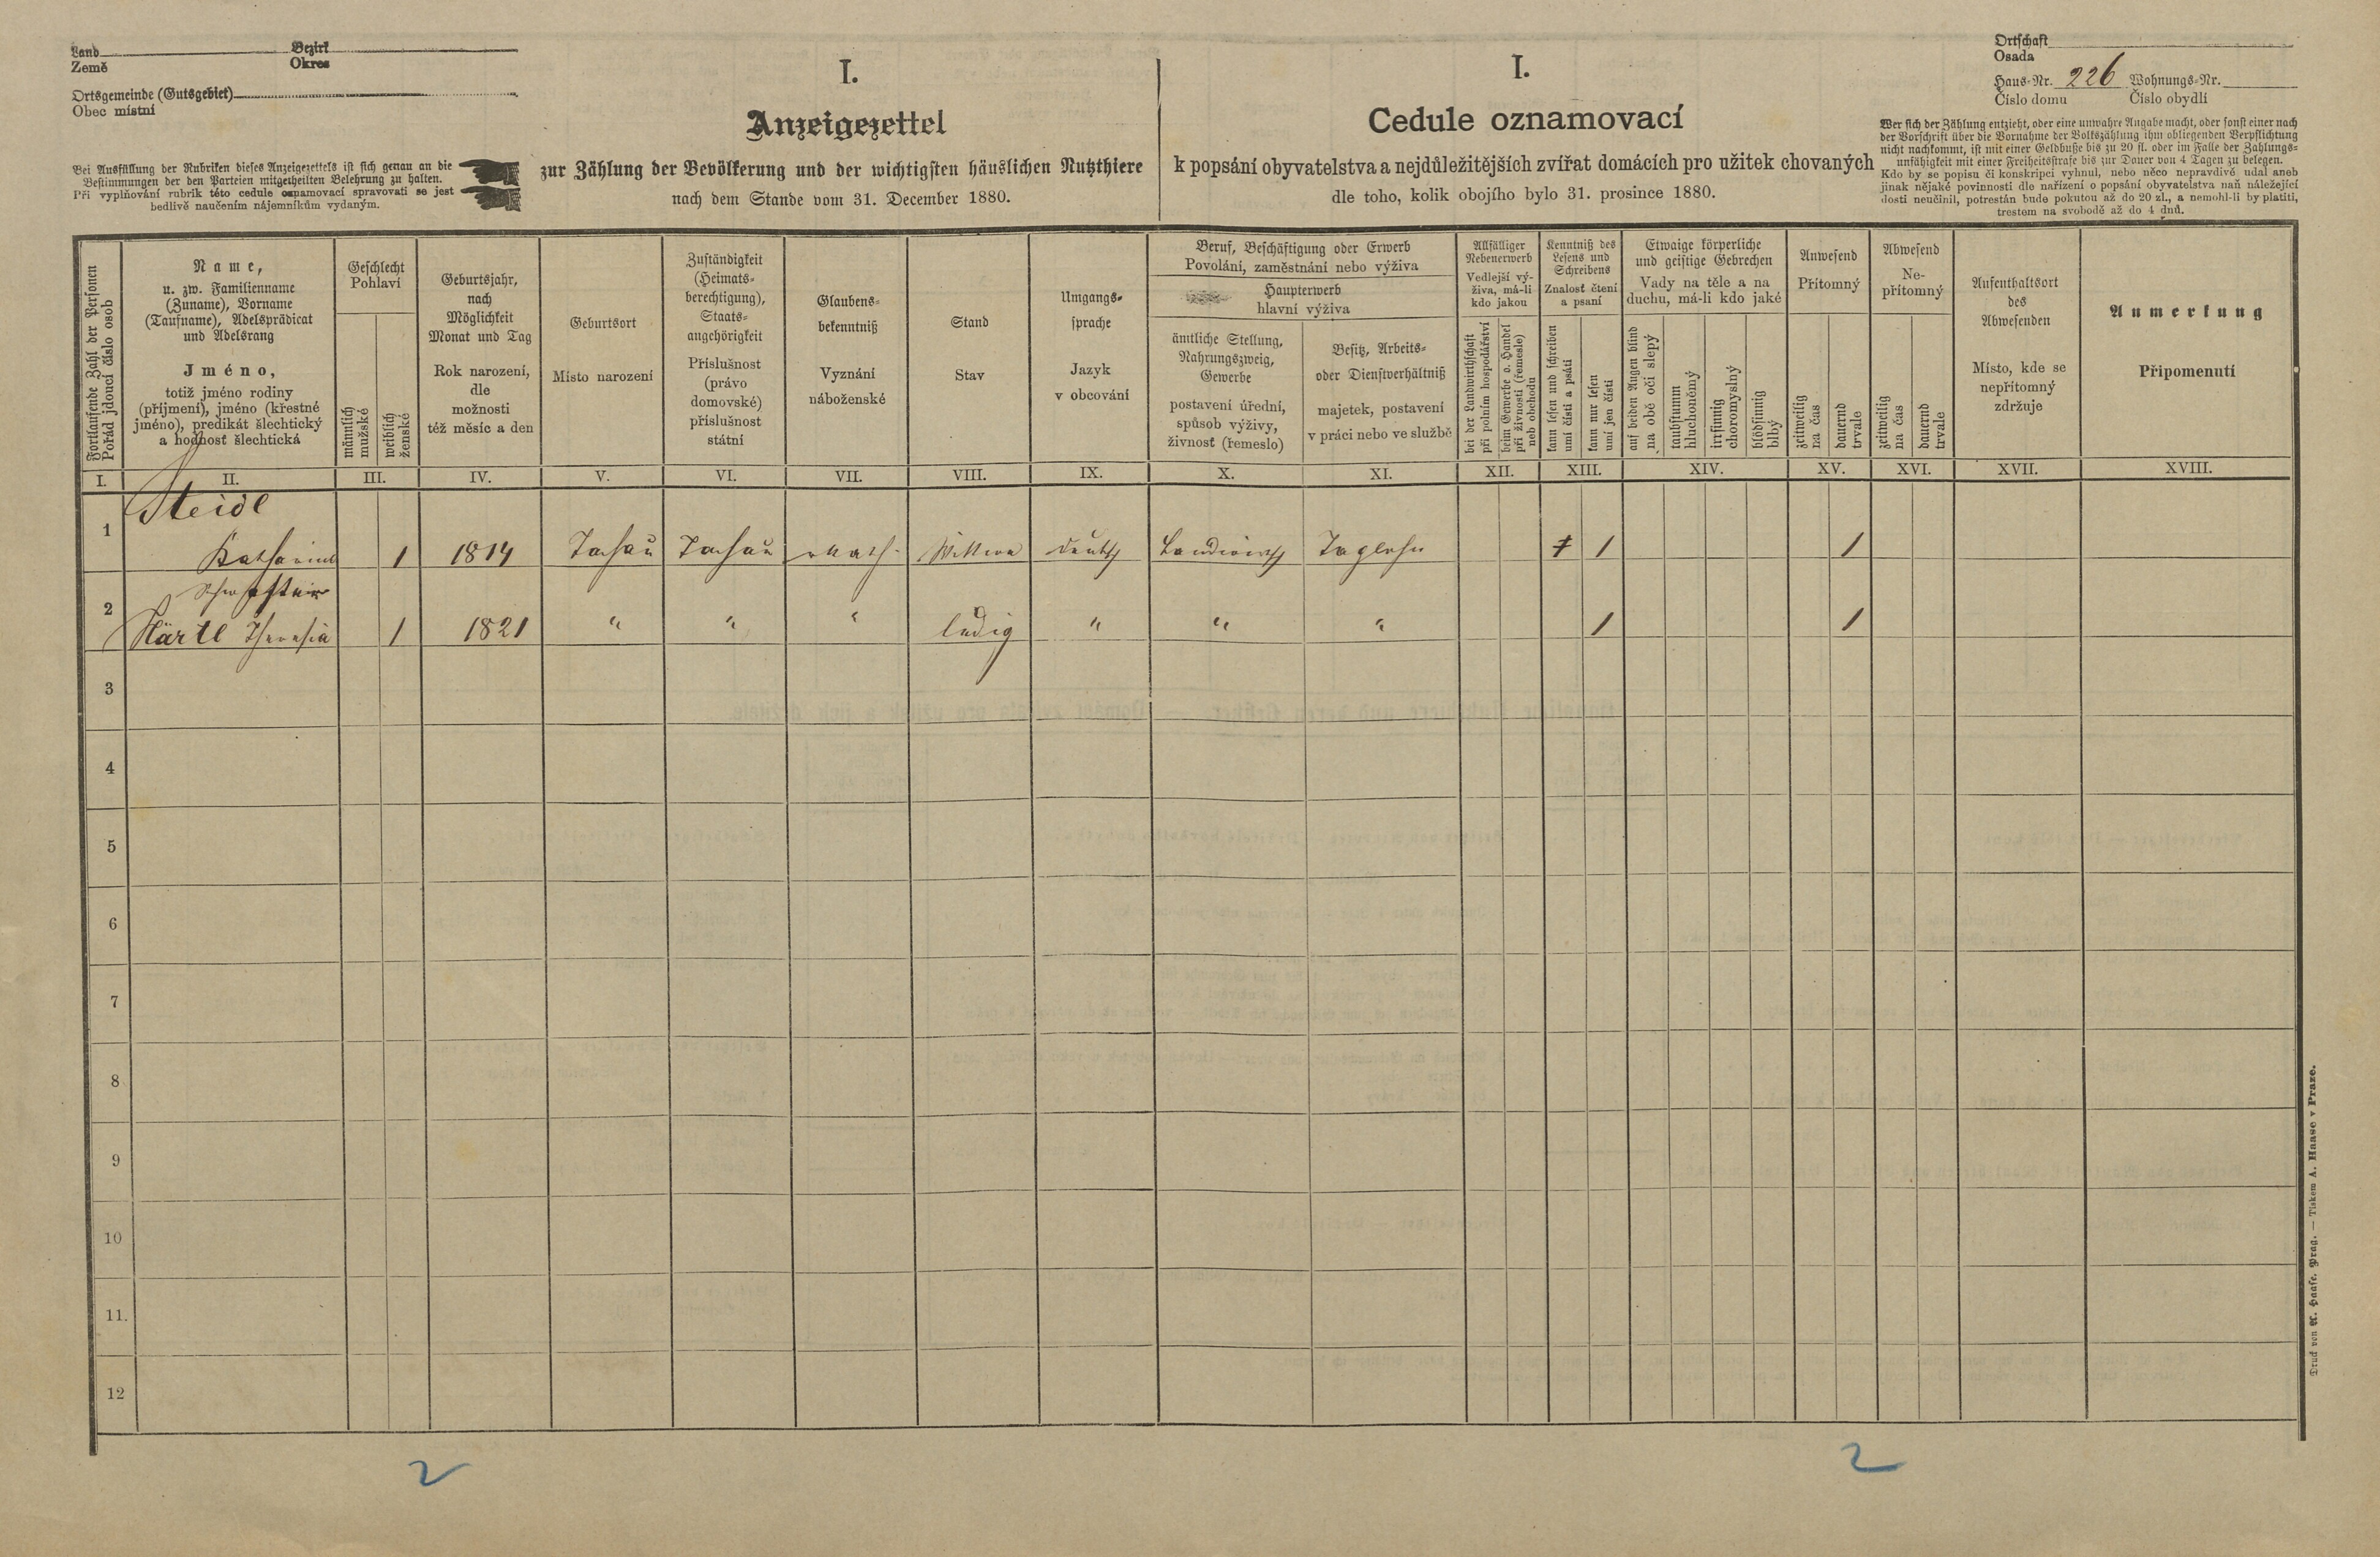 Land Bezirk
Země Okres
Ortsgemeinde (Gutsgebiet)
Obec místní
Bei Ausfüllung der Rubriken dieses Anzeigezettels ist sich genau an die
Bestimmungen der den Parteien mitgetheilten Belehrung zu halten.
Při vyplňování rubrik této cedule oznamovací spravovati se jest
bedlivě naučením nájemníkům vydaným.
I.
Anzeigezettel
zur Zählung der Bevölkerung und der wichtigsten häuslichen Nutzthiere
nach dem Stande vom 31. December 1880.
I.
Cedule oznamovací
k popsání obyvatelstva a nejdůležitějších zvířat domácích pro užitek chovaných
dle toho, kolik obojího bylo 31. prosince 1880.
Ortschaft
Osada
Haus-Nr. 226 Wohnungs-Nr.
Číslo domu Číslo obydlí
Wer sich der Zählung entzieht, oder eine unwahre Angabe macht, oder sonst einer nach
der Vorschrift über die Vornahme der Volkszählung ihm obliegenden Verpflichtung
nicht nachkommt, ist mit einer Geldbuße bis zu 20 fl. oder im Falle der Zahlungs-
unfähigkeit mit einer Freiheitsstrafe bis zur Dauer von 4 Tagen zu belegen.
Kdo by se popisu či konskripci vyhnul, nebo něco nepravdivě udal aneb
jinak nějaké povinnosti dle nařízení o popsání obyvatelstva naň náležející
dosti neučinil, potrestán bude pokutou až do 20 zl., a nemohl-li by platiti,
trestem na svobodě až do 4 dnů.
Fortlaufende Zahl der Personen
Pořád jdoucí číslo osob
Name,
u. zw. Familienname
(Zuname), Vorname
(Taufname), Adelsprädicat
und Adelsrang
Jméno,
totiž jméno rodiny
(příjmení), jméno (křestné
jméno), predikát šlechtický
a hodnost šlechtická
Geschlecht
Pohlaví
männlich
mužské
weiblich
ženské
Geburtsjahr,
nach
Möglichkeit
Monat und Tag
Rok narození,
dle
možnosti
též měsíc a den
Geburtsort
Místo narození
Zuständigkeit
(Heimats-
berechtigung),
Staats-
angehörigkeit
Příslušnost
(právo
domovské)
příslušnost
státní
Glaubens-
bekenntniß
Vyznání
náboženské
Stand
Stav
Umgangs-
sprache
Jazyk
v obcování
Beruf, Beschäftigung oder Erwerb
Povolání, zaměstnání nebo výživa
Haupterwerb
hlavní výživa
ämtliche Stellung,
Nahrungszweig,
Gewerbe
postavení úřední,
spůsob výživy,
živnost (řemeslo)
Besitz, Arbeits-
oder Dienstverhältniß
majetek, postavení
v práci nebo ve službě
Allfälliger
Nebenerwerb
Vedlejší vý-
živa, má-li
kdo jakou
bei der Landwirthschaft
při polním hospodářství
beim Gewerbe o. Handel
při živnosti (řemesle)
neb obchodu
Kenntniß des
Lesens und
Schreibens
Znalost čtení
a psaní
kann lesen und schreiben
umí čísti a psáti
kann nur lesen
umí jen čísti
Etwaige körperliche
und geistige Gebrechen
Vady na těle a na
duchu, má-li kdo jaké
auf beiden Augen blind
na obě oči slepý
taubstumm
hluchoněmý
irrsinnig
choromyslný
blödsinnig
blbý
Anwesend
Přítomný
zeitweilig
na čas
dauernd
trvale
Abwesend
Ne-
přítomný
zeitweilig
na čas
dauernd
trvale
Aufenthaltsort
des
Abwesenden
Místo, kde se
nepřítomný
zdržuje
Anmerkung
Připomenutí
I. II. III. IV. V. VI. VII. VIII. IX. X. XI. XII. XIII. XIV. XV. XVI. XVII. XVIII.
Steidl
1 Katharina 1 1814 Tachau Tachau rkath. Wittwe deutsch Landwirtsch Taglohn 1 1
Schwester
2 Härtl Theresia 1 1821 " " " ledig " " " 1 1
3
4
5
6
7
8
9
10
11.
12
2 2
Druck von A. Haase, Prag. — Tiskem A. Haase v Praze.